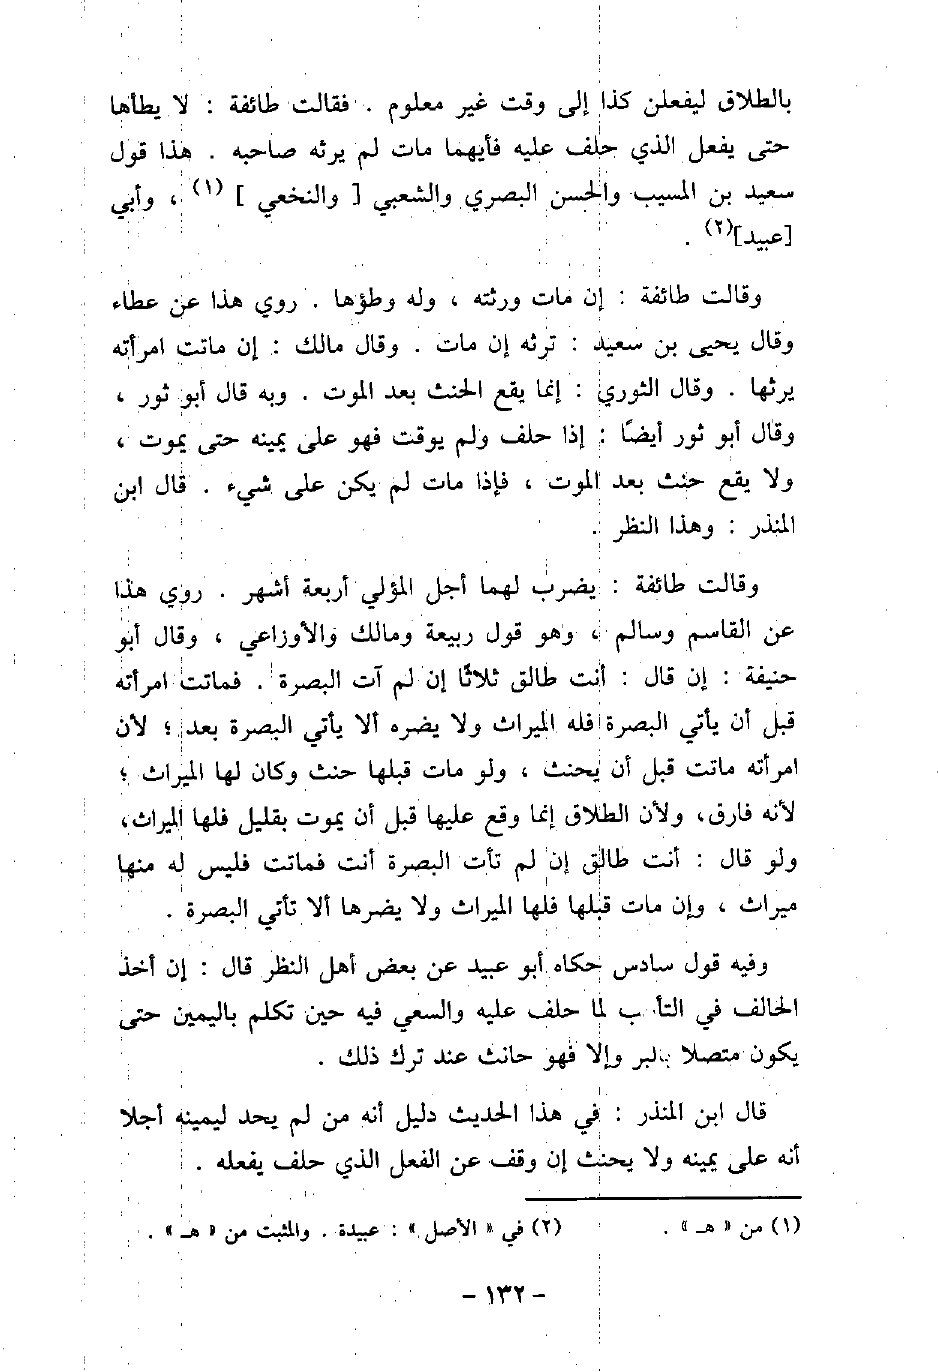 بالطلاق ليفعلن كذا إلى وقت غير معلوم . فقالت طائفة : لا يطأها
حتى يفعل الذي حلف عليه فأيهما مات لم يرثه صاحبه . هذا قول
سعيد بن المسيب والحسن البصري والشعبي [ والنخعي ] (١) ، وأبي
[عبيد](٢) .
وقالت طائفة : إن مات ورثته ، وله وطؤها . روي هذا عن عطاء
وقال يحيى بن سعيد : ترثه إن مات . وقال مالك : إن ماتت امرأته
يرثها . وقال الثوري : إنما يقع الحنث بعد الموت . وبه قال أبو ثور ،
وقال أبو ثور أيضًا : إذا حلف ولم يوقت فهو على يمينه حتى يموت ،
ولا يقع حنث بعد الموت ، فإذا مات لم يكن على شيء . قال ابن
المنذر : وهذا النظر .
وقالت طائفة : يضرب لهما أجل المؤلي أربعة أشهر . روي هذا
عن القاسم وسالم ، وهو قول ربيعة ومالك والأوزاعي ، وقال أبو
حنيفة : إن قال : أنت طالق ثلاثًا إن لم آت البصرة . فماتت امرأته
قبل أن يأتي البصرة فله الميراث ولا يضره ألا يأتي البصرة بعد ؛ لأن
امرأته ماتت قبل أن يحنث ، ولو مات قبلها حنث وكان لها الميراث ؛
لأنه فارق، ولأن الطلاق إنما وقع عليها قبل أن يموت بقليل فلها الميراث،
ولو قال : أنت طالق إن لم تأت البصرة أنت فماتت فليس له منها
ميراث ، وإن مات قبلها فلها الميراث ولا يضرها ألا تأتي البصرة .
وفيه قول سادس حكاه أبو عبيد عن بعض أهل النظر قال : إن أخذ
الحالف في التأهب لما حلف عليه والسعي فيه حين تكلم باليمين حتى
يكون متصلا بالبر وإلا فهو حانث عند ترك ذلك .
قال ابن المنذر : في هذا الحديث دليل أنه من لم يحد ليمينه أجلا
أنه على يمينه ولا يحنث إن وقف عن الفعل الذي حلف يفعله .
(١) من « هـ » . (٢) في « الأصل » : عبيدة . والمثبت من « هـ » .
- ١٣٢ -